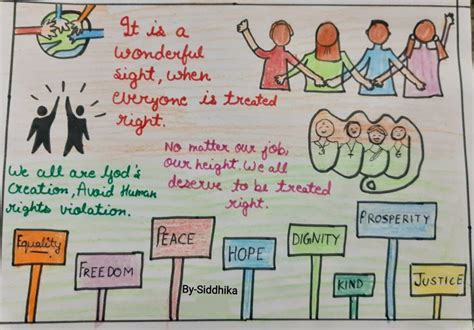 It is a
wonderful
sight, when
everyone is treated
right.
No matter our job,
our height. We all
deserve to be treated
right.
We all are God's
Creation, Avoid Human
rights violation.
EquaLity
FREEDOM
PEACE
HOPE
DIGNITY
KIND
PROSPERITY
JUSTICE
By-Siddhika